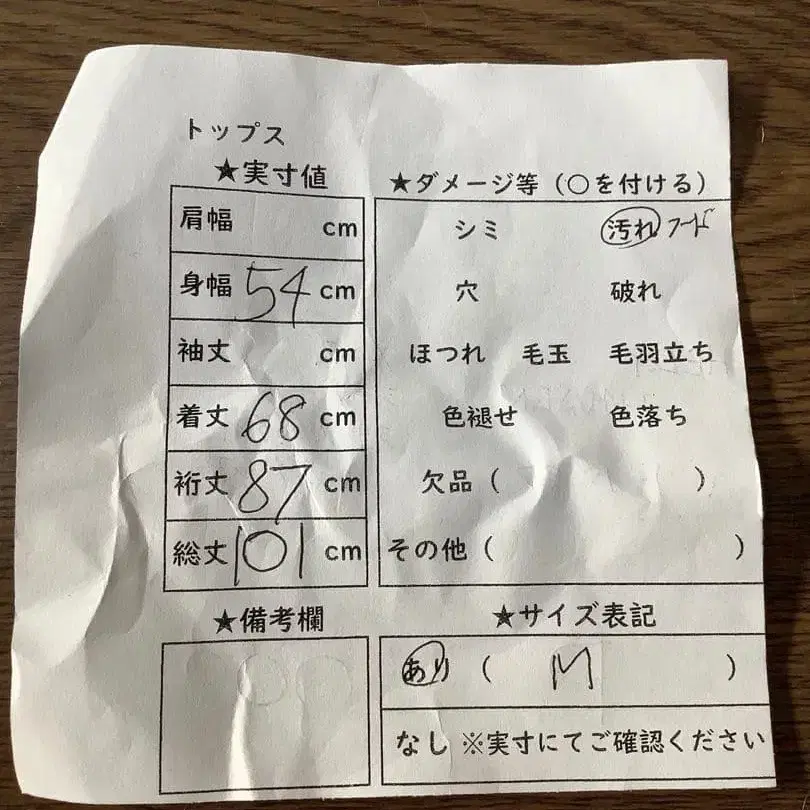 トップス
★実寸値
肩幅 cm
身幅 54 cm
袖丈 cm
着丈 68 cm
裄丈 87 cm
総丈 101 cm
★ダメージ等（○を付ける）
シミ 汚れ フード
穴 破れ
ほつれ 毛玉 毛羽立ち
色褪せ 色落ち
欠品（ ）
その他（ ）
★備考欄
★サイズ表記
あり （ M ）
なし ※実寸にてご確認ください